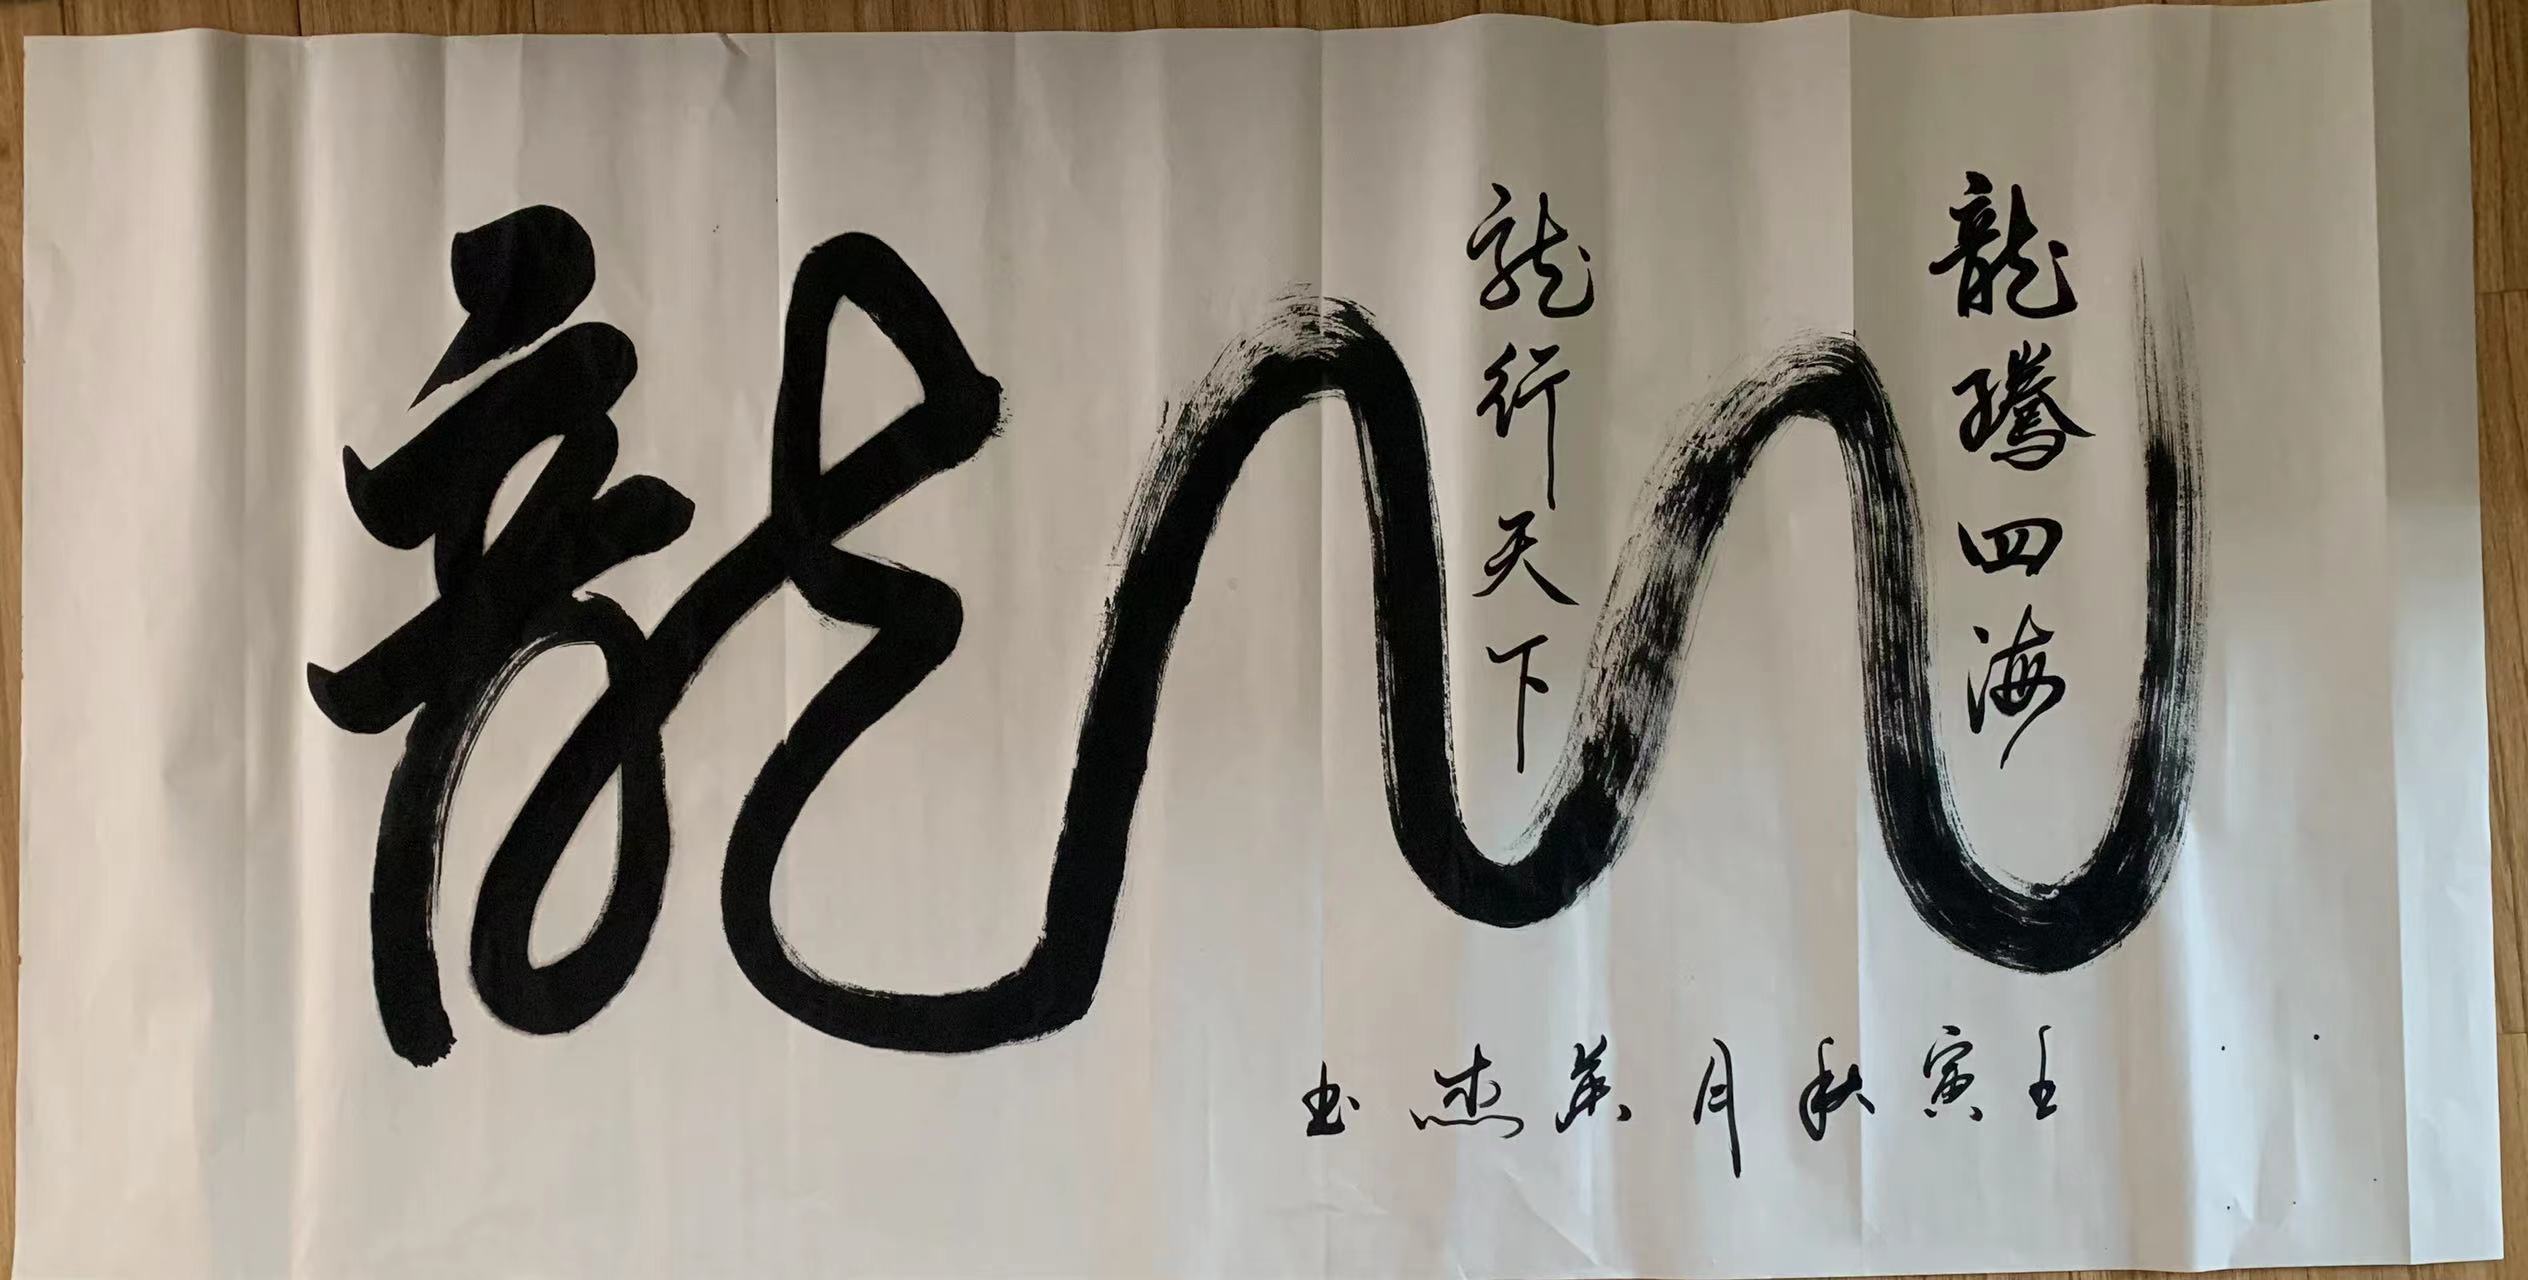 龍
龍騰四海
龍行天下
壬寅秋月英杰书